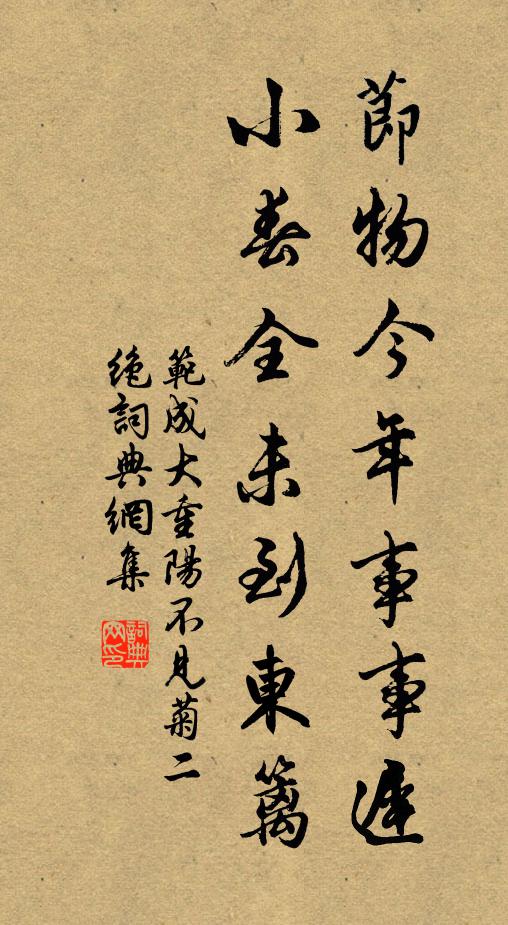 節物今年事事遲
小春全未到東籬
範成大重陽不見菊二
絕詞典網集
詞典網印